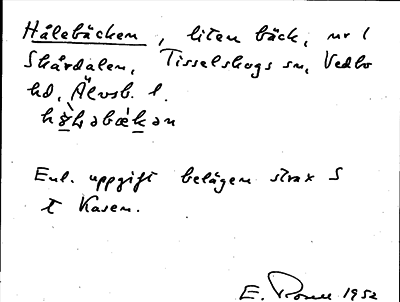 Hålebäcken, liten bäck, nr 1
Skårdalen, Tisselskogs sn, Vedbo
hd, Älvsb. l.
Enl. uppgift belägen strax S
t Kasen.
E. 1952